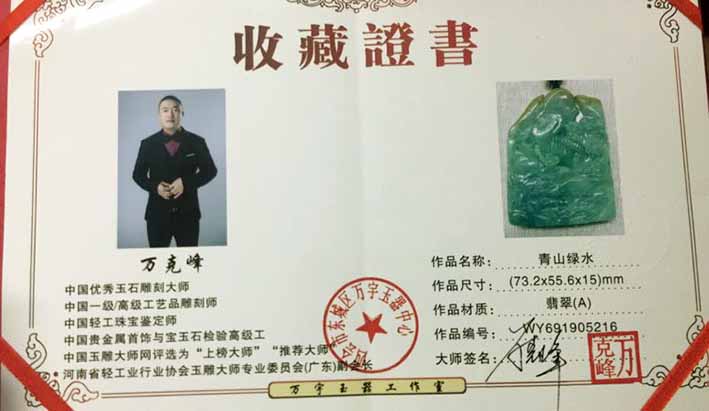 收藏證書
万克峰
中国优秀玉石雕刻大师
中国一级/高级工艺品雕刻师
中国轻工珠宝鉴定师
中国贵金属首饰与宝玉石检验高级工
中国玉雕大师网评选为“上榜大师”“推荐大师”
河南省轻工业行业协会玉雕大师专业委员会(广东)副会长
作品名称：青山绿水
作品尺寸：(73.2x55.6x15)mm
作品材质：翡翠(A)
作品编号：WY691905216
大师签名：
万克峰
四会市东城区万宇玉器中心
万宇玉器工作室